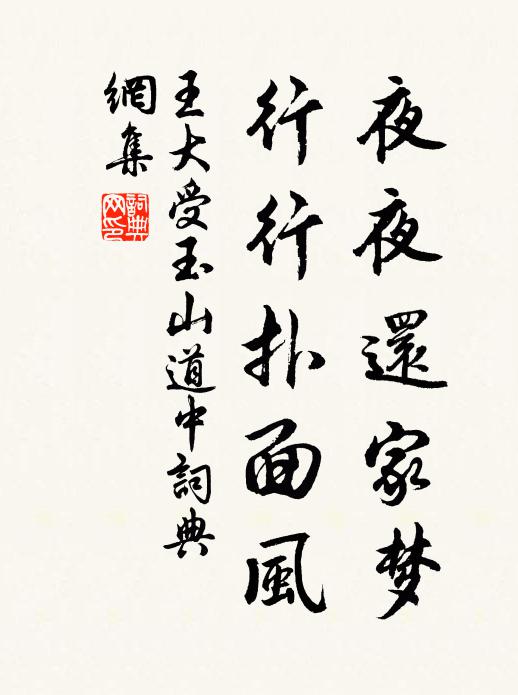 夜夜還家梦
行行扑面風
王大受玉山道中詞典
網集
詞典网印